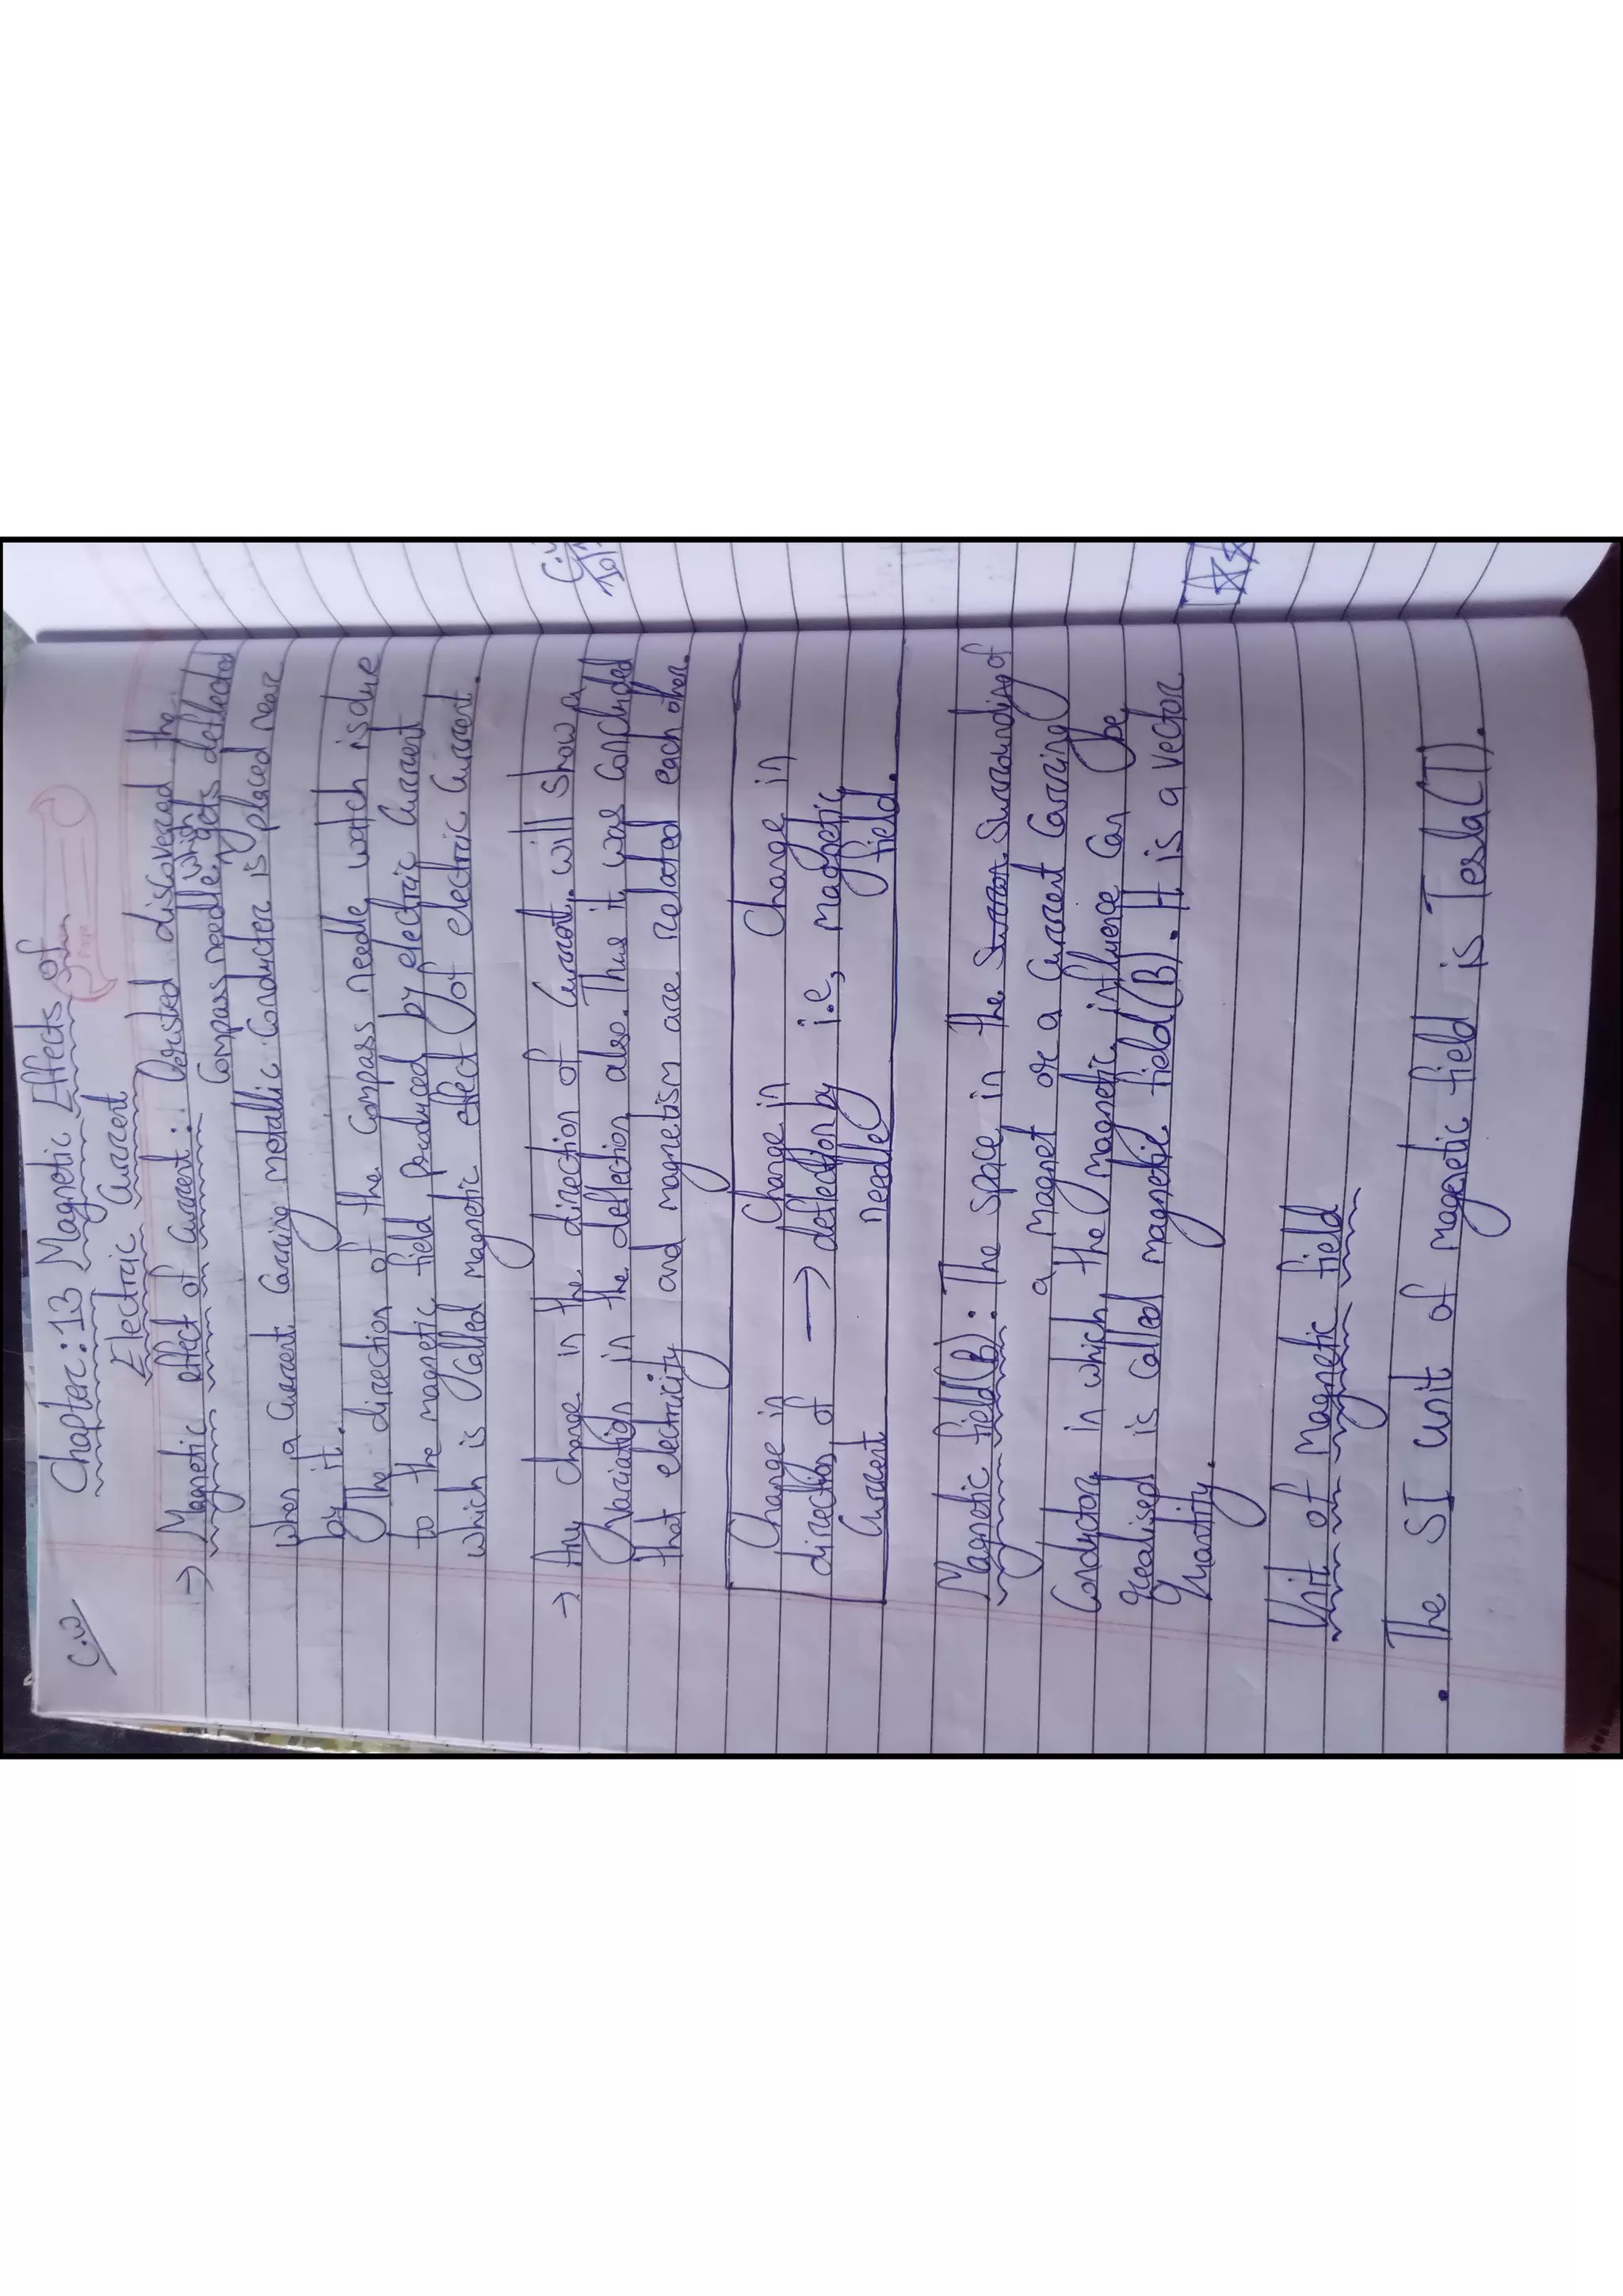 C.W
Chapter:13 Magnetic Effects of
Electric Current
→ Magnetic effect of Current: Oersted discovered the
Compass needle which gets deflected
when a Current Carring metallic Conducter is placed near
by it.
The direction of the Compass needle watch is due
to the magnetic field produced by electric Current
which is Called magnetic effect of electric Current.
→ Any change in the direction of Current, will show a
Variation in the deflection also. Thus it was Concluded
that electricity and magnetism are related each other.
Change in Change in Change in
direction of → deflection by i.e, magnetic
Current needle field.
Magnetic field(B): The space in the Surrounding of
a magnet or a Current Carring
Conductor in which the magnetic influence Can be
realised is called magnetic field(B). It is a vector
Quantity.
Unit of Magnetic field
• The SI unit of magnetic field is Tesla(T).